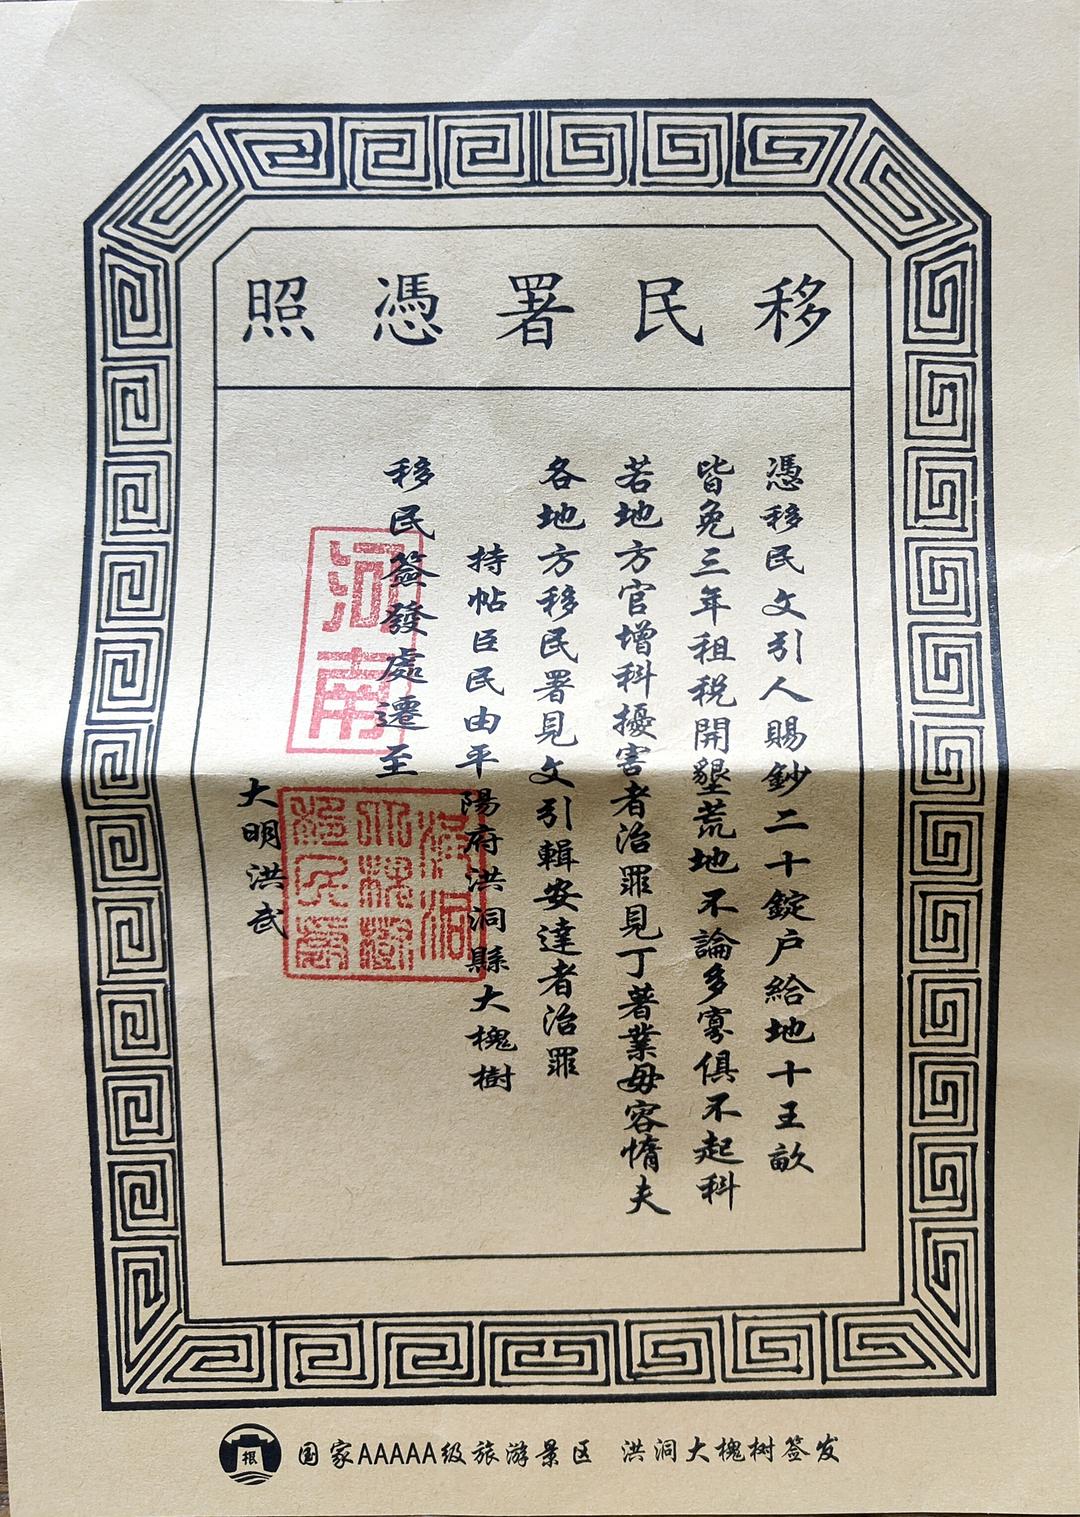 移民署憑照
憑移民文引人賜鈔二十錠户給地十王畝
皆免三年租税開墾荒地不論多寡俱不起科
若地方官增科擾害者治罪見丁著業毋容惰夫
各地方移民署見文引輯安達者治罪
持帖臣民由平陽府洪洞縣大槐樹
移民簽發處遷至
河南
大明洪武
洪洞
大槐樹
移民署
根
国家AAAAA级旅游景区 洪洞大槐树签发